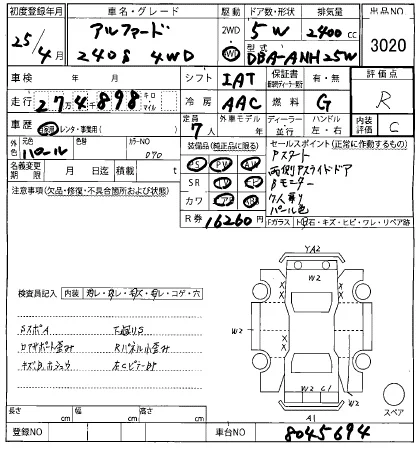 初度登録年月 車名・グレード 駆動 ドア数・形状 排気量 出品NO
25/4月 アルファード 2WD 5W 2400cc
240S 4WD 4WD 型式 DBA-ANH25W 3020
車検 年 月 シフト IAT 保証書 有・無 評価点
走行 27万4千898 キロ マイル 冷房 AAC 燃料 G R
車歴 自家用・レンタ・事業用( ) 定員 7人 外車モデル 年 ディーラー・並行 ハンドル 左・右 内装評価 C
外色 元色 パール 色替 カラーNO 070 装備品(純正品に限る) セールスポイント(正常に作動するもの)
名義変更期限 月 日迄 積載 t PS PW AW Pスタート
SR TV ナビ 両側PスライドドアBモニター
注意事項(欠品・修復・不具合箇所および状態) カワ エアB ABS 7人乗り
パール色
R券 16260円 Fガラス トビ石・キズ・ヒビ・ワレ・リペア跡
YA2
W2
検査員記入 内装 ヨゴレ・スレ・キズ・穴・コゲ・穴
SスポA 下廻りS
コアサポート歪み Rパネル小歪み
キズB.ホシュウ 左CピラーBP
W2 W2
W2 C1
A1
スペア
長さ cm 幅 cm 高さ cm
登録NO 車台NO 8045694